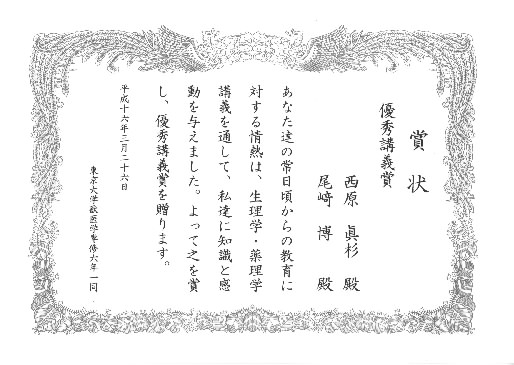 賞状
優秀講義賞
西原 眞杉 殿
尾﨑 博 殿
あなた達の常日頃からの教育に
対する情熱は、生理学・薬理学
講義を通して、私達に知識と感
動を与えました。よって之を賞
し、優秀講義賞を贈ります。
平成十六年三月二十六日
東京大学獣医学専修六年一同